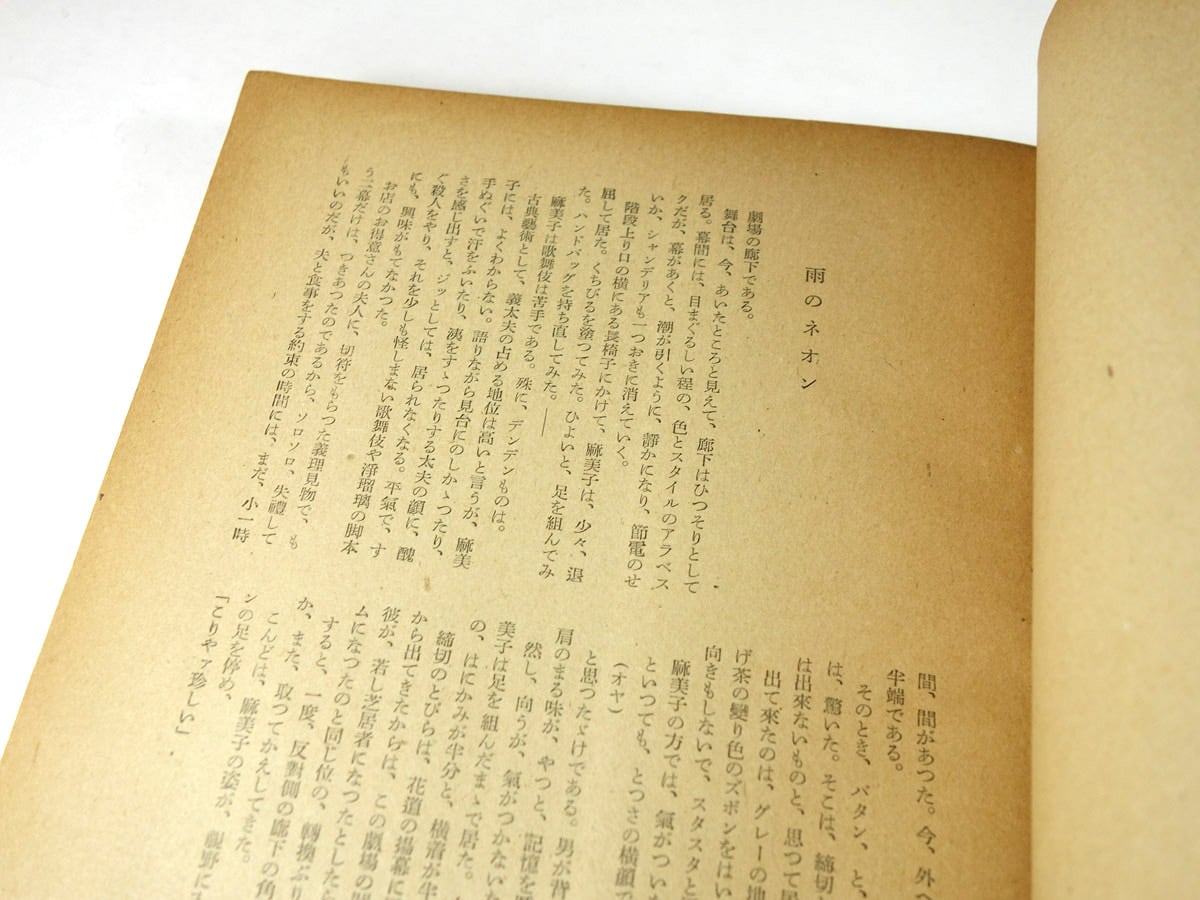 雨のネオン
劇場の廊下である。
舞台は、今、あいたところと見えて、廊下はひつそりとして
居る。幕間には、目まぐるしい程の、色とスタイルのアラベス
クだが、幕があくと、潮が引くように、靜かになり、節電のせ
いか、シャンデリアも一つおきに消えていく。
階段上り口の横にある長椅子にかけて、麻美子は、少々、退
屈して居た。くちびるを塗つてみた。ひよいと、足を組んでみ
た。ハンドバッグを持ち直してみた。――
麻美子は歌舞伎は苦手である。殊に、デンデンものは。
古典藝術として、義太夫の占める地位は高いと言うが、麻美
子には、よくわからない。語りながら見台にのしかゝつたり、
手ぬぐいで汗をふいたり、洟をすゝつたりする太夫の顔に、醜
さを感じ出すと、ジッとしては、居られなくなる。平氣で、す
ぐ殺人をやり、それを少しも怪しまない歌舞伎や淨瑠璃の脚本
にも、興味がもてなかつた。
お店のお得意さんの夫人に、切符をもらつた義理見物で、も
う二幕だけは、つきあつたのであるから、ソロソロ、失禮して
もいいのだが、夫と食事をする約束の時間には、まだ、小一時
間、間があつた。今、外へ
半端である。
そのとき、バタン、と、
は、驚いた。そこは、締切
は出來ないものと、思つて居
出て來たのは、グレーの地
げ茶の變り色のズボンをはい
向きもしないで、スタスタと
麻美子の方では、氣がついた
といつても、とつさの横顔で
（オヤ）
と思つたゞけである。男が背
肩のまる味が、やつと、記憶を
然し、向うが、氣がつかないた
美子は足を組んだまゝで居た。
の、はにかみが半分と、横着が半
締切のとびらは、花道の揚幕に
から出てきたからは、この劇場の
彼が、若し芝居者になつたとしたら
ムになつたのと同じ位の、轉換ぶり
すると、一度、反對側の廊下の角
か、また、取つてかえしてきた。
こんどは、麻美子の姿が、視野に
ンの足を停め、
「こりやァ珍しい」